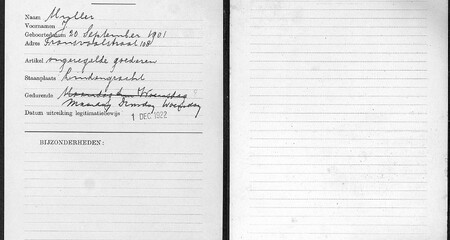 Naam Muller
Voornamen J.
Geboortedatum 20 September 1901
Adres Transvaalstraat 108
Artikel ongeregelde goederen
Staanplaats Lindengracht
Gedurende Maandag t/m Woensdag
Maandag Dinsdag Woensdag
Datum uitreiking legitimatiebewijs 1 DEC 1922
BIJZONDERHEDEN: